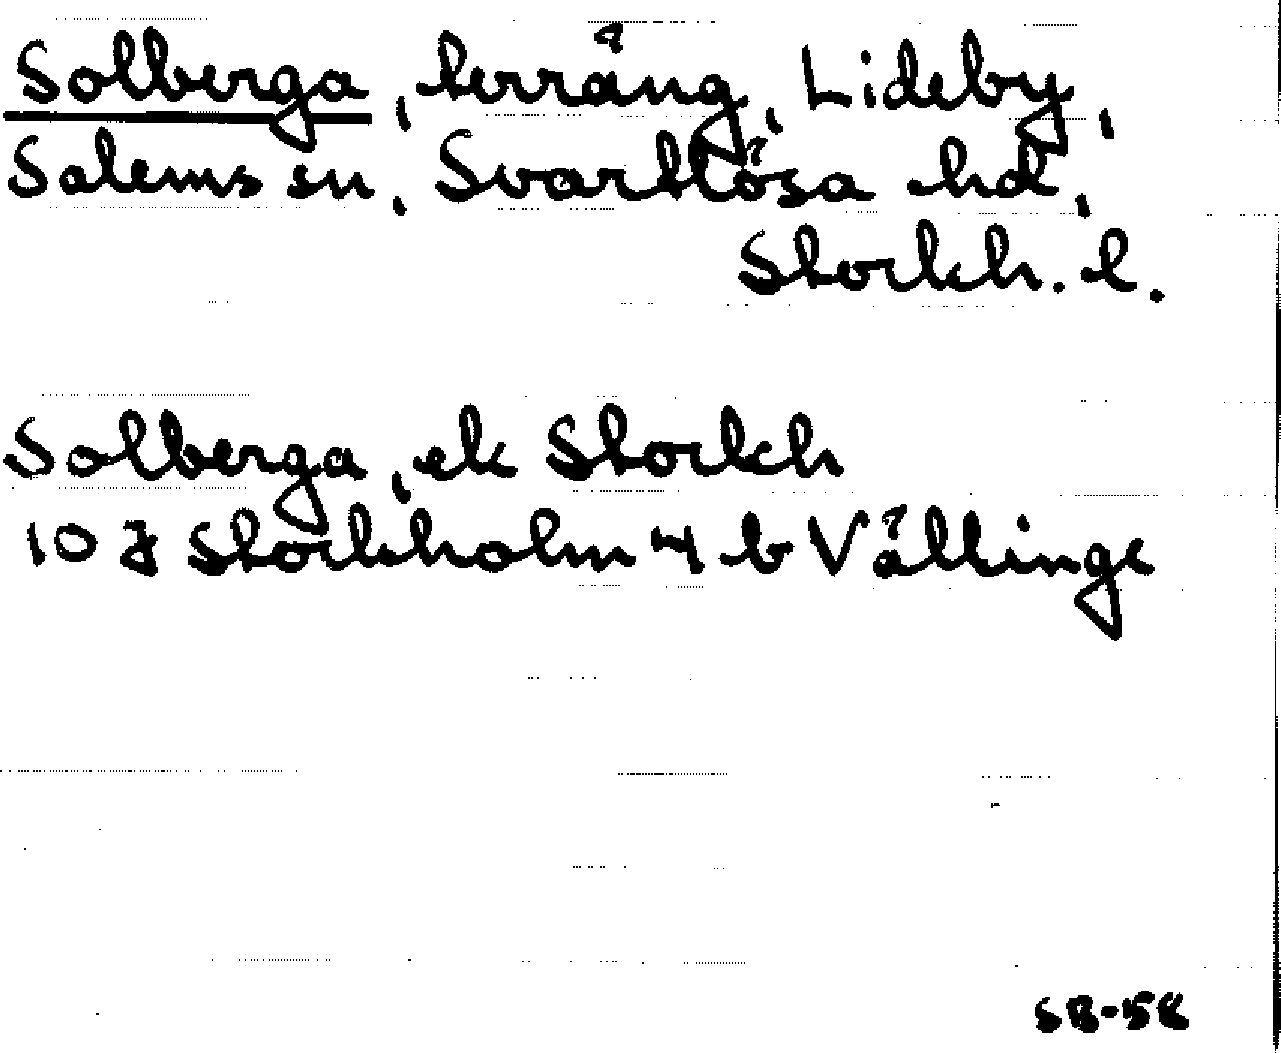 Solberga, terräng, Lideby,
Salems sn, Svartlösa hd,
Stockh. l.
Solberga, ek Stockh
10 J Stockholm 4 b Vällinge
SB-58